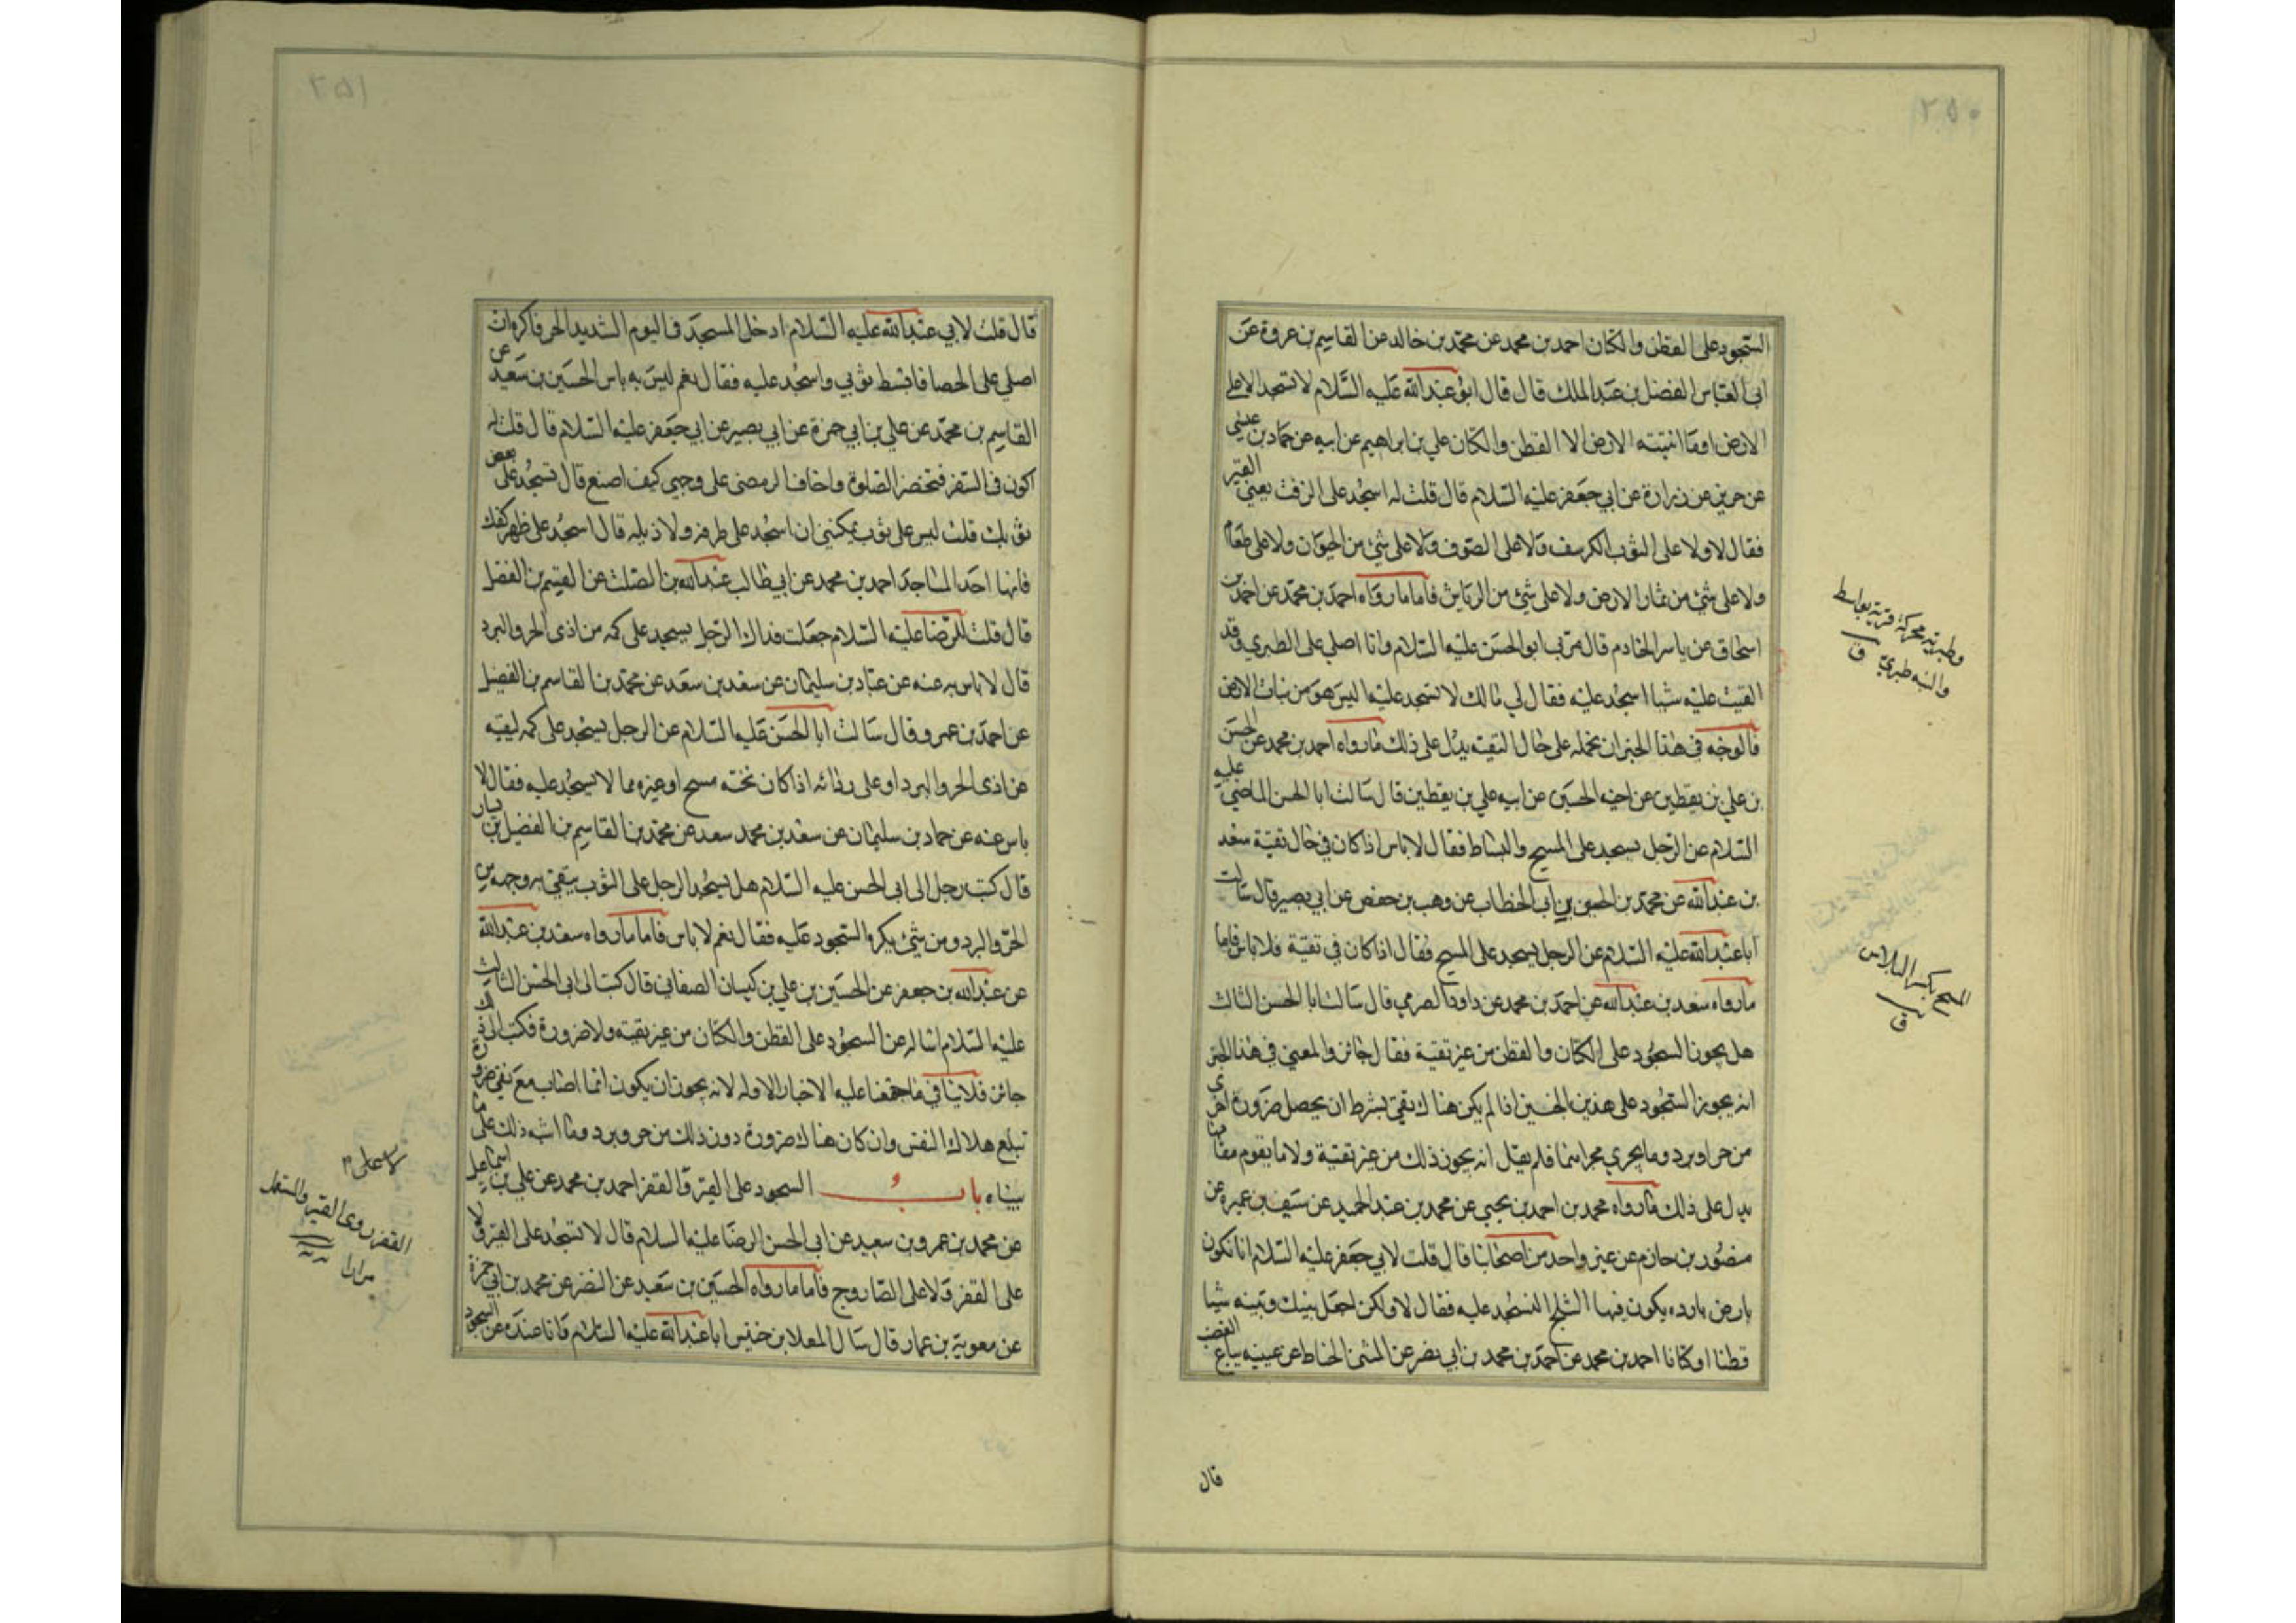 ٢٥٠
السجود على القطن والكتان احمد بن محمد عن محمد بن خالد عن القاسم بن عروة عن
ابي العباس الفضل بن عبد الملك قال قال ابو عبد الله عليه السلام لا تسجد الا على
الارض او ما انبتته الارض الا القطن والكتان علي بن ابراهيم عن ابيه عن حماد بن عيسى
عن حريز عن زرارة عن ابي جعفر عليه السلام قال قلت له اسجد على الزفت يعني القير
فقال لا ولا على الثوب الكرسف ولا على الصوف ولا على شئ من الحيوان ولا على طعام
ولا على شئ من ثمار الارض ولا على شئ من الرياش فاما ما رواه احمد بن محمد عن احمد بن
اسحاق عن ياسر الخادم قال مر بي ابو الحسن عليه السلام وانا اصلي على الطبري وقد
القيت عليه شيا اسجد عليه فقال لي مالك لا تسجد عليه اليس هو من نبات الارض
فالوجه في هذا الخبر ان نحمله على حال التقية يدل على ذلك ما رواه احمد بن محمد عن الحسن
بن علي بن يقطين عن اخيه الحسين عن ابيه علي بن يقطين قال سالت ابا الحسن الماضي عليه
السلام عن الرجل يسجد على المسح والبساط فقال لا باس اذا كان في حال تقية سعد
بن عبد الله عن محمد بن الحسين بن ابي الخطاب عن وهب بن حفص عن ابي بصير قال سالت
ابا عبد الله عليه السلام عن الرجل يسجد على المسح فقال اذا كان في تقية فلا باس فاما
ما رواه سعد بن عبد الله عن احمد بن محمد عن داود الصرمي قال سالت ابا الحسن الثالث
هل يجوز السجود على الكتان والقطن من غير تقية فقال جائز والمعنى في هذا الخبر
انه يجوز السجود على هذين الجنسين اذا لم يكن هناك تقي بشرط ان يحصل ضرورة اخرى
من حر او برد وما يجري مجراهما فلم يقل انه يجوز ذلك من غير تقية ولا ما يقوم مقامها
يدل على ذلك ما رواه محمد بن احمد بن يحيى عن محمد بن عبد الحميد عن سيف بن عميرة عن
منصور بن حازم عن غير واحد من اصحابنا قال قلت لابي جعفر عليه السلام انا نكون
بارض باردة يكون فيها الثلج افنسجد عليه فقال لا ولكن اجعل بينك وبينه شيا
قطنا او كتانا احمد بن محمد عن احمد بن محمد بن ابي نصر عن المثنى الحناط عن عيينة بياع القصب
وطبرية محركة قرية بواسط
والنسبة طبري ق
المسح بكسر البلاس
ق
قال
٢٥١
قال قلت لابي عبد الله عليه السلام ادخل المسجد في اليوم الشديد الحر فاكره ان
اصلي على الحصا فابسط ثوبي واسجد عليه فقال نعم ليس به باس الحسين بن سعيد عن
القاسم بن محمد عن علي بن ابي حمزة عن ابي بصير عن ابي جعفر عليه السلام قال قلت له
اكون في السفر فتحضر الصلوة واخاف الرمضى على وجهي كيف اصنع قال تسجد على بعض
ثوبك قلت ليس علي ثوب يمكنني ان اسجد على طرفه ولا ذيله قال اسجد على ظهر كفك
فانها احد المساجد احمد بن محمد عن ابي طالب عبد الله بن الصلت عن القسم بن الفضل
قال قلت للرضا عليه السلام جعلت فداك الرجل يسجد على كمه من اذى الحر والبرد
قال لا باس به عنه عن عباد بن سليمان عن سعد بن سعد عن محمد بن القاسم بن الفضيل
عن احمد بن عمر وقال سالت ابا الحسن عليه السلام عن الرجل يسجد على كمه ليقيه
من اذى الحر والبرد او على ردائه اذا كان تحته مسح او غيره مما لا يسجد عليه فقال لا
باس عنه عن حماد بن سليمان عن سعد بن محمد سعد عن محمد بن القاسم بن الفضل بن يسار
قال كتب رجل الى ابي الحسن عليه السلام هل يسجد الرجل على الثوب يتقي به وجهه من
الحر والبرد ومن شئ يكره السجود عليه فقال نعم لا باس فاما ما رواه سعد بن عبد الله
عن عبد الله بن جعفر عن الحسين بن علي بن كيسان الصنعاني قال كتب الى ابي الحسن الثالث
عليه السلام اساله عن السجود على القطن والكتان من غير تقية ولا ضرورة فكتب الي ذلك
جائز فلا ينافي ما جمعنا عليه الاخبار الاوله لانه يجوز ان يكون انما اصاب مع نفي ضرورة
تبلغ هلاك النفس وان كان هناك ضرورة دون ذلك من حر وبرد وما اشبه ذلك على ما
بيناه باب السجود على القير والقفر احمد بن محمد عن علي بن اسماعيل
عن محمد بن عمرو بن سعيد عن ابي الحسن الرضا عليه السلام قال لا تسجد على القير و لا
على القفر ولا على الصاروج فاما ما رواه الحسين بن سعيد عن النضر عن محمد بن ابي حمزة
عن معوية بن عمار قال سال المعلا بن خنيس ابا عبد الله عليه السلام وانا عنده عن السجود
القفر ردى القير والمستعمل
مرارا